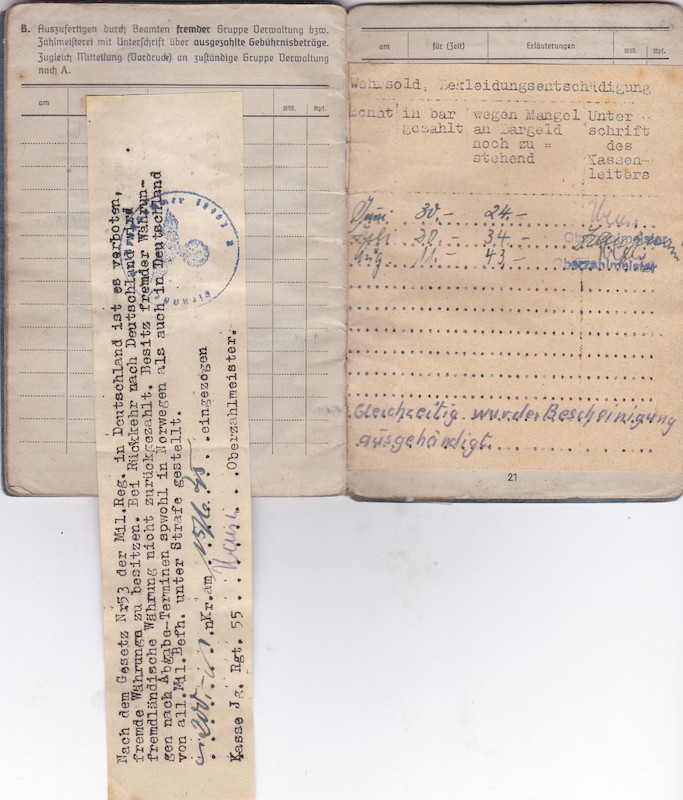 B. Auszufertigen durch Beamten fremder Gruppe Verwaltung bzw.
Zahlmeisterei mit Unterschrift über ausgezahlte Gebührnisbeträge.
Zugleich Mitteilung (Vordruck) an zuständige Gruppe Verwaltung
nach A.
am
RM.
Rpf.
Nach dem Gesetz Nr53 der Mil.Reg. in Deutschland ist es verboten,
fremde Währungen zu besitzen. Bei Rückkehr nach Deutschland wird
fremdländische Währung nicht zurückgezahlt. Besitz fremder Währun-
gen nach Abgabe-Terminen sowohl in Norwegen als auch in Deutschland
von all.Mil.Befh. unter Strafe gestellt.
200.- nKr.am 15/6.45 eingezogen
Kasse Jg. Rgt. 55 Oberzahlmeister.
am für (Zeit) Erläuterungen RM. Rpf.
Wehrsold, Bekleidungsentschädigung
in bar wegen Mangel Unter
gezahlt an Bargeld schrift
noch zu = des
stehend Kassen-
leiters
Juni 30.- 24.-
Juli 20.- 34.-
Aug. 11.- 43.-
Oberzahlmeister
Gleichzeitig wurde Bescheinigung
ausgehändigt.
21